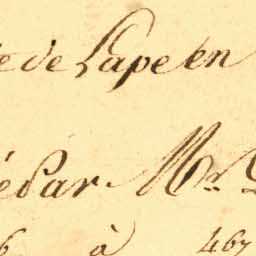 de Lape en
é Par Mr
6 à 467